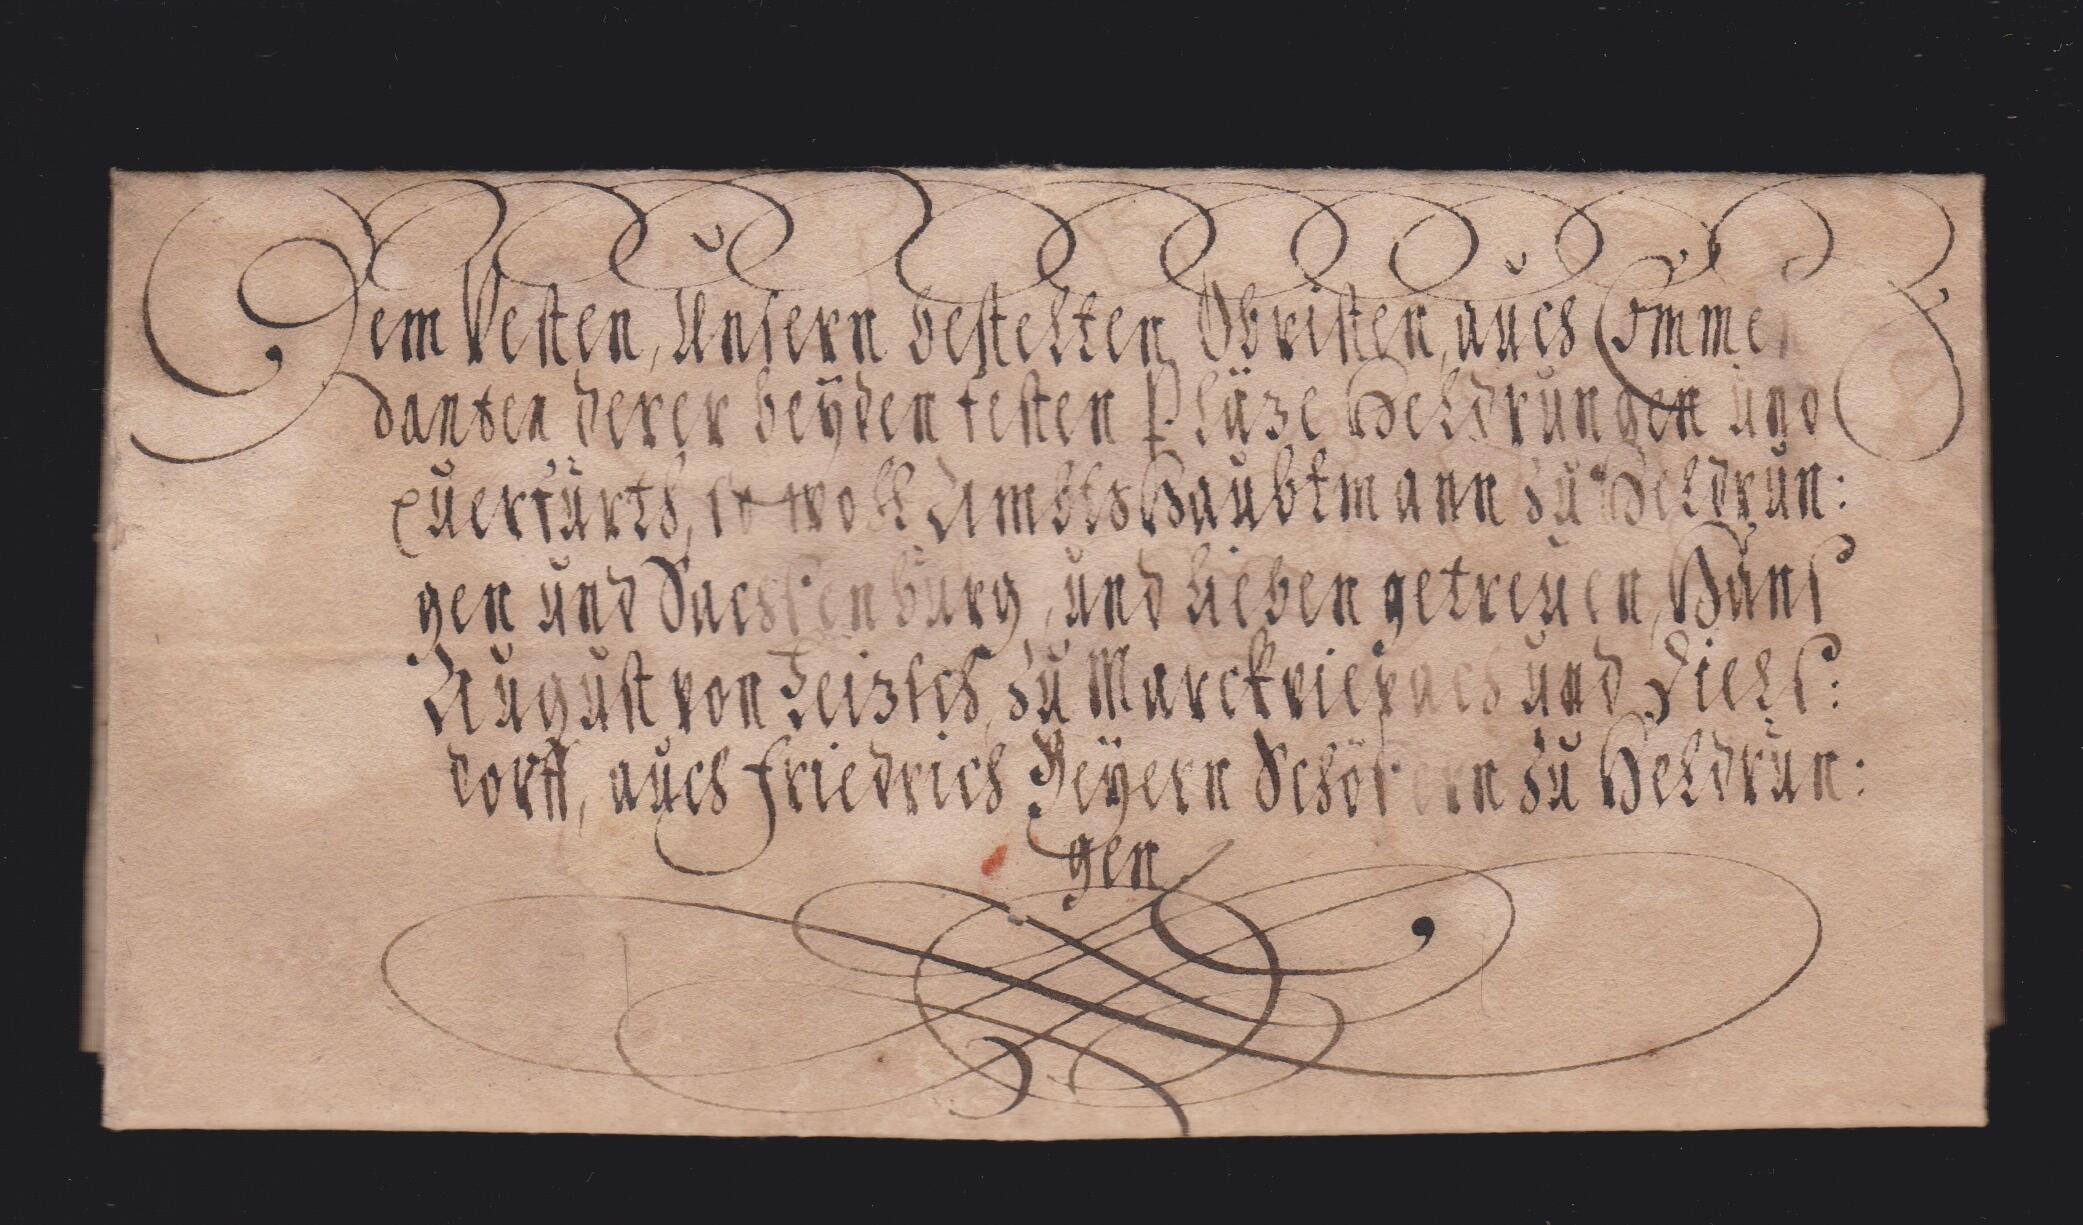 Dem Vesten, Unsern bestelten Obristen, auch Com̅en
danten derer beÿden festen Pläze Heldrungen und
Querfurth, so woll Ambts Haubtmann zu Heldrun:
gen und Sachssenburg, und lieben getreuen, Hanß
August von Zeizsch, zu Marckvippach und Dielß:
dorff, auch Friedrich Beÿern Schößern zu Heldrun:
gen